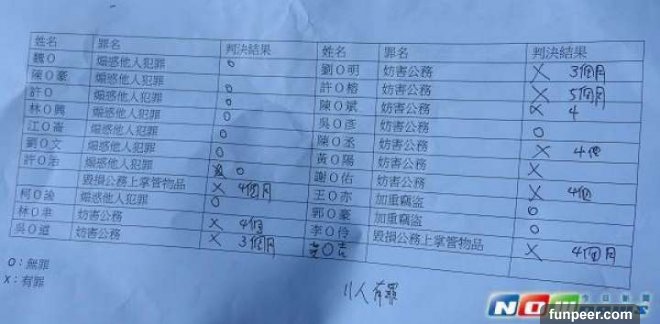 姓名 罪名 判決結果
魏O 煽惑他人犯罪 O
陳O豪 煽惑他人犯罪 O
許O 煽惑他人犯罪 O
林O興 煽惑他人犯罪 O
江O崙 煽惑他人犯罪 O
劉O文 煽惑他人犯罪 O
許O治 煽惑他人犯罪 O
毀損公務上掌管物品 X 4個月
柯O 煽惑他人犯罪 O
林O 妨害公務 X 4個
吳O道 妨害公務 X 3個月
O：無罪
X：有罪
姓名 罪名 判決結果
劉O明 妨害公務 X 3個月
許O榕 妨害公務 X 5個月
陳O斌 妨害公務 X 4
吳O彥 妨害公務 O
陳O丞 妨害公務 X 4個
黃O陽 妨害公務 X
謝O佑 妨害公務 X 4個
王O亦 加重竊盜 O
郭O豪 加重竊盜 O
李O伶 毀損公務上掌管物品 X 4個月
O吉
11人有罪
今日新聞
NOWnews
funpeer.com